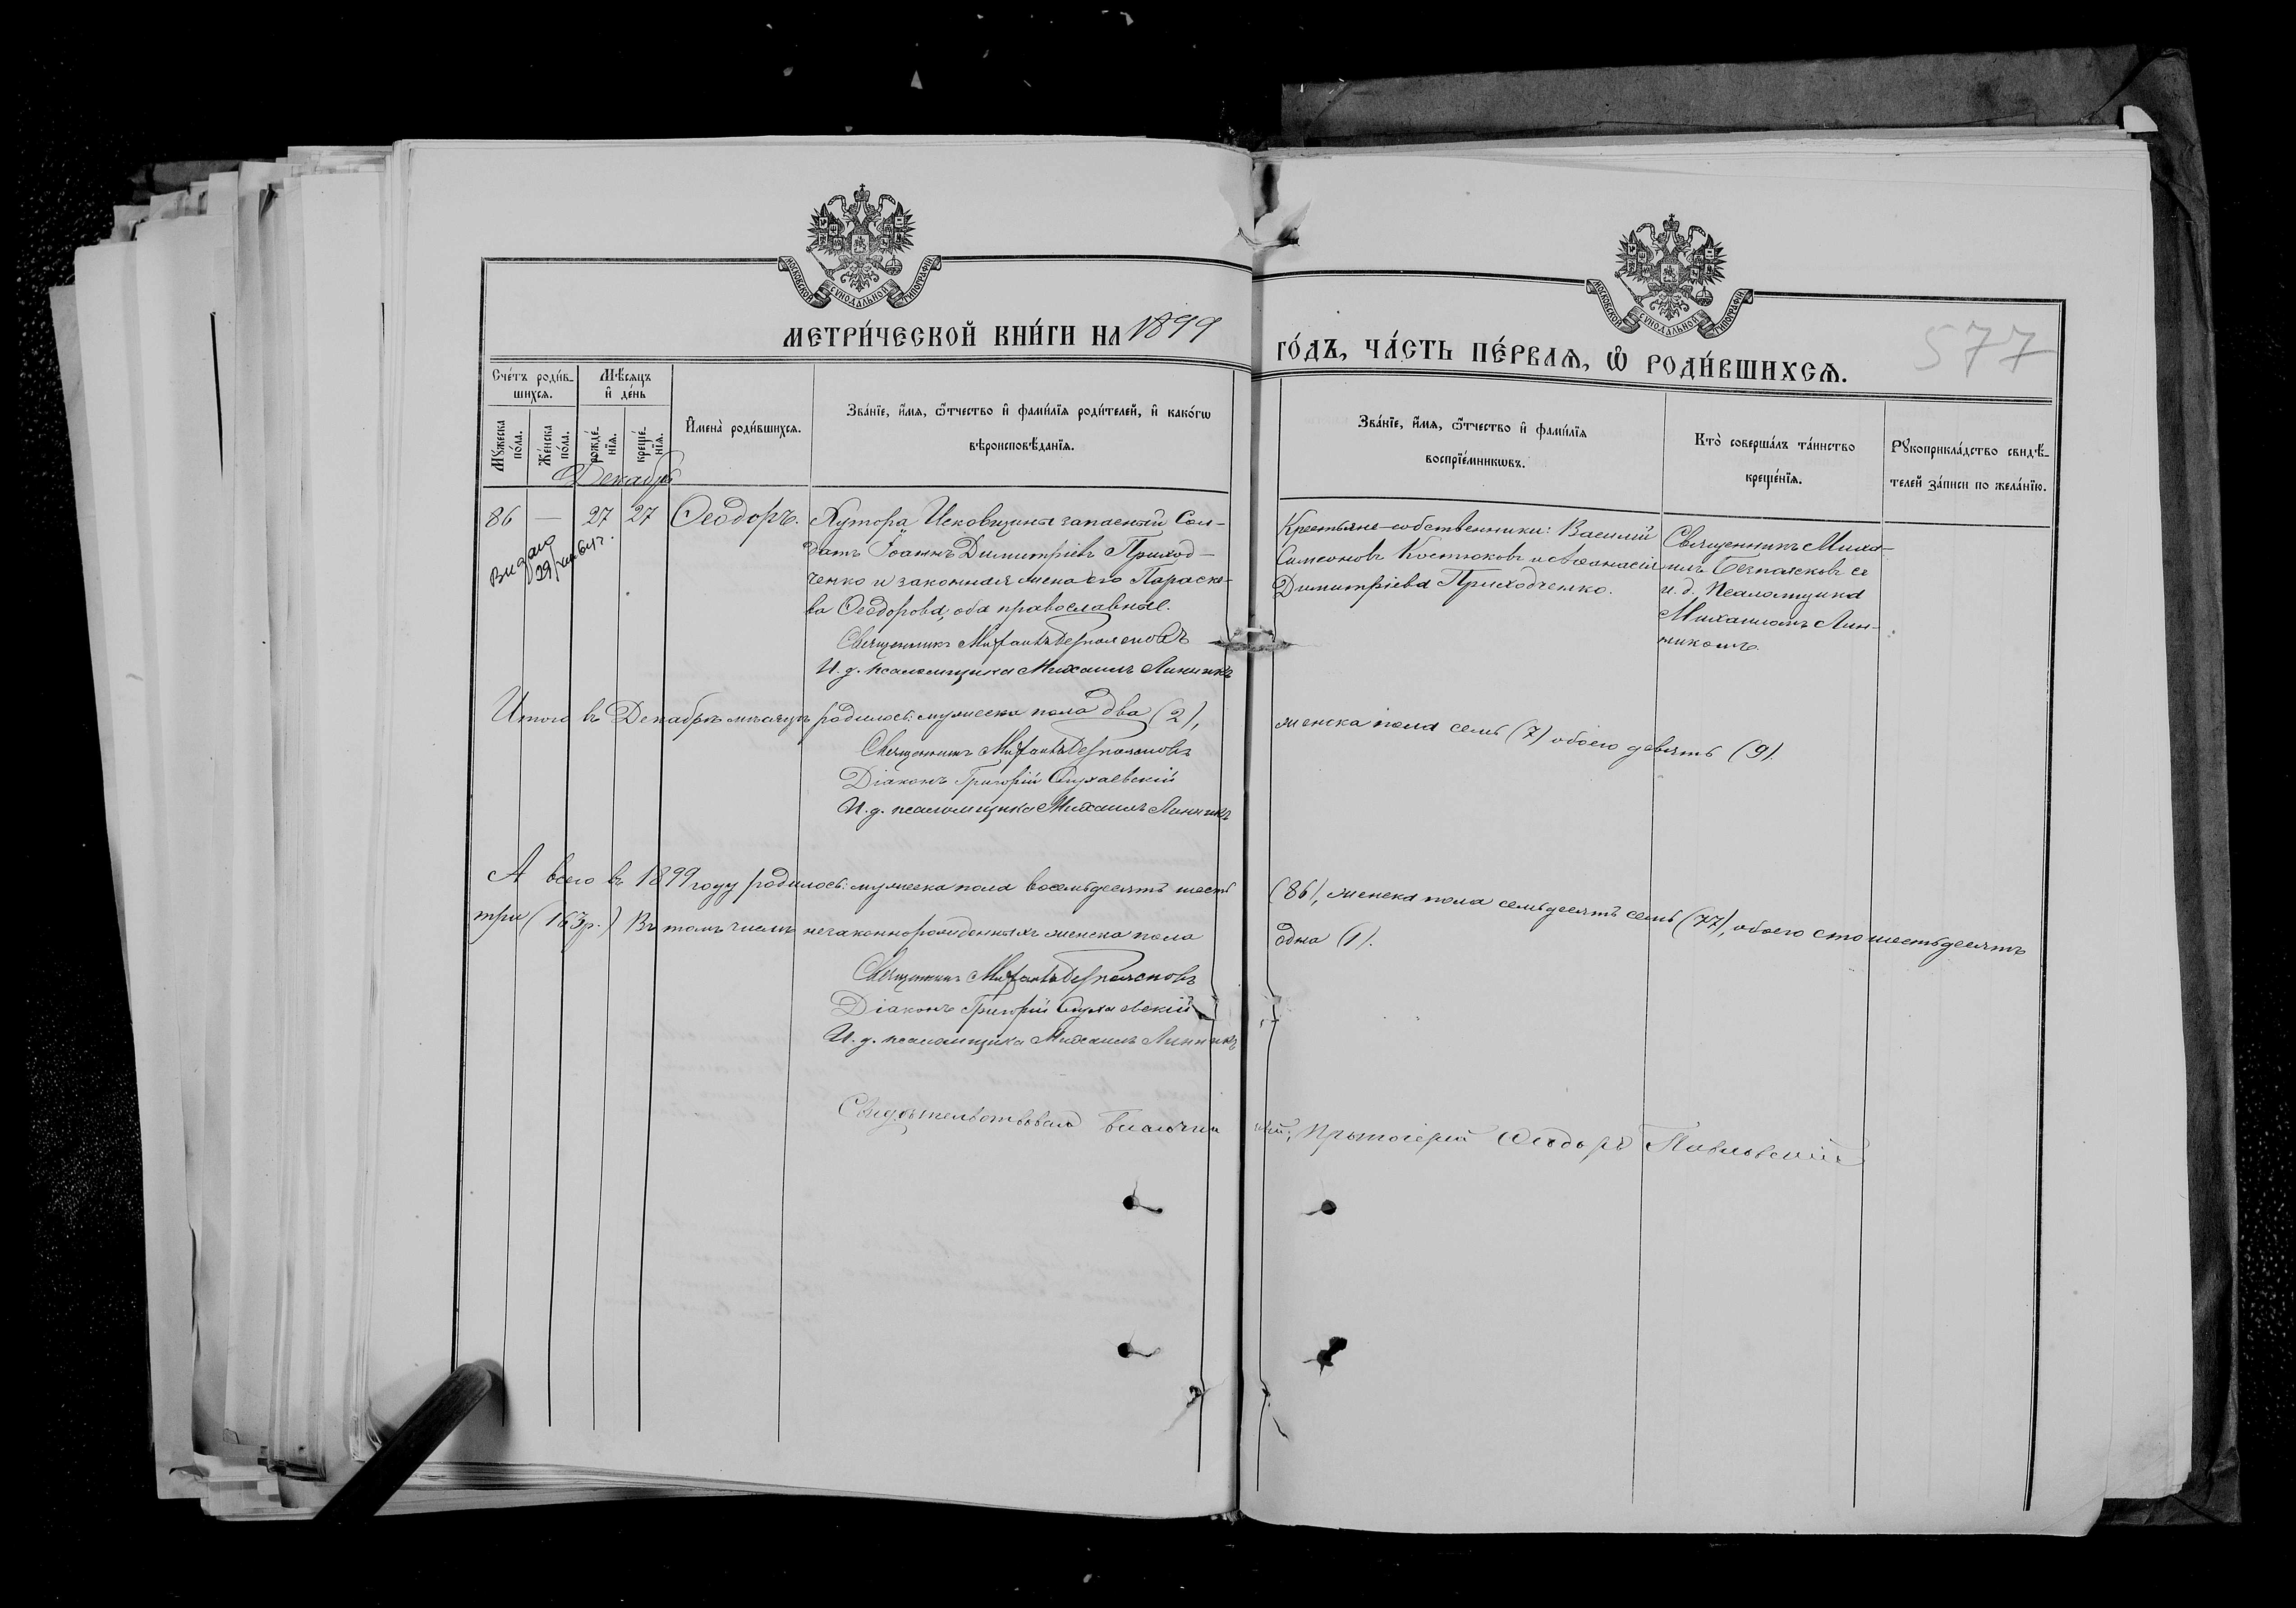 МОСКОВСКОЙ СѴНОДАЛЬНОЙ ТИПОГРАФІИ
МОСКОВСКОЙ СѴНОДАЛЬНОЙ ТИПОГРАФІИ
МЕТРИ́ЧЕСКОЙ КНИ́ГИ НА 1899
ГО́ДЪ, ЧА́СТЬ ПЕ́РВАѦ, Ѽ РОДИ́ВШИХСѦ.
577
Сче́тъ роди́в-
шихсѧ.
Мѣ́сѧцъ
и҆ де́нь
Мꙋ́жеска
по́ла.
Же́нска
по́ла.
рожде́-
нїѧ.
креще́-
нїѧ.
И҆мена̀ роди́вшихсѧ.
Зва́нїе, и҆́мѧ, ѻ҆́тчество и҆ фами́лїѧ роди́телей, и҆ како́гѡ
вѣроисповѣ́данїѧ.
Зва́нїе, и҆́мѧ, ѻ҆́тчество и҆ фами́лїѧ
воспрїе́мникѡвъ.
Кто̀ соверша́лъ та́инство
креще́нїѧ.
Рꙋкоприкла́дство свидѣ́-
телей за́писи по жела́нїю.
Декабрь
86 — 27 27 Ѳеодоръ.
Видано
Хутора Исковщины запасный Сол-
датъ Іоаннъ Димитріевъ Приход-
ченко и законная жена его Параске-
ва Ѳеодорова, оба православные.
Священникъ Михаилъ Безпаясковъ
И. д. псаломщика Михаилъ Линникъ
Крестьяне-собственники: Василій
Симеоновъ Костюковъ и Аѳанасій
Димитріева Приходченко.
Священникъ Миха-
илъ Безпаясковъ съ
и. д. Псаломщика
Михаиломъ Лин-
никомъ.
Итого въ Декабрѣ мѣсяцѣ родилось: мужеска пола два (2), женска пола семь (7) обоего девять (9).
Священникъ Михаилъ Безпаясковъ
Діаконъ Григорій
И. д. псаломщика Михаилъ Линникъ
А всего въ 1899 году родилось: мужеска пола восемьдесятъ шесть (86), женска пола семьдесятъ семь (77), обоего сто шестьдесятъ
три (163 р.) Въ томъ числѣ незаконнорожденныхъ женска пола одна (1).
Священникъ Михаилъ Безпаясковъ
Діаконъ Григорій
И. д. псаломщика Михаилъ Линникъ
Свидѣтельствовалъ Благочинный, Протоіерей Ѳеодоръ Павловскій